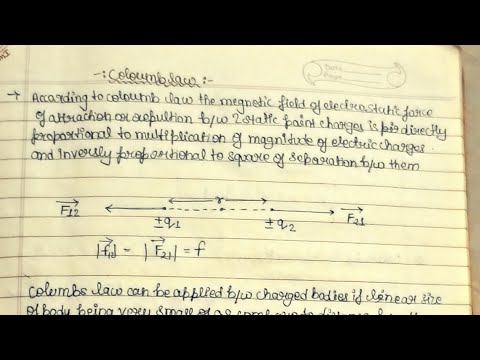 Date
Page
-: Coloumb law :-
→ According to coloumb law the megnetic field of electrostatic force
of attraction or repulsion b/w 2 static point charges is directly
proportional to multiplication of magnitude of electric charges.
and inversly proportional to square of separation b/w them
r
F₁₂ ±q₁ ±q₂ F₂₁
|F₁₂| = |F₂₁| = f
Columbs law can be applied b/w charged bodies if linear size
of body being very small as distance